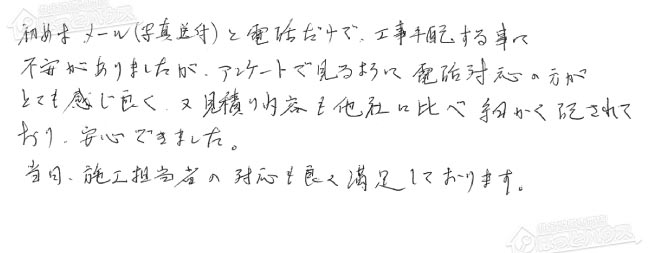 初めは メール(写真送付)と電話だけで、工事手配する事に
不安がありましたが、アンケートで見るように 電話対応の方が
とても感じ良く、又見積り内容も他社に比べ 細かく記されて
おり、安心できました。
当日、施工担当者の対応も良く満足しております。